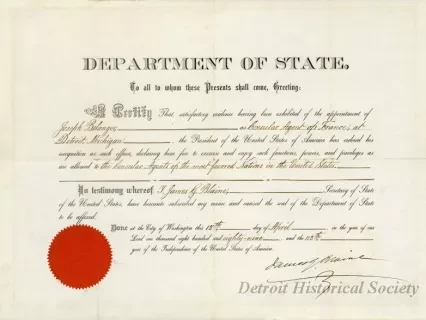 DEPARTMENT OF STATE.
To all to whom these Presents shall come, Greeting:
I Certify That satisfactory evidence having been exhibited of the appointment of
Joseph Belanger as Consular Agent of France, at
Detroit, Michigan, the President of the United States of America has asked his
recognition as such officer, declaring him free to exercise and enjoy such functions, powers, and privileges as
are allowed to the Consular Agents of the most favored Nations in the United States.
In testimony whereof I, James G. Blaine, Secretary of State
of the United States, have hereunto subscribed my name and caused the seal of the Department of State
to be affixed.
Done at the City of Washington this 15th day of April in the year of our
Lord one thousand eight hundred and eighty-nine, and the
year of the Independence of the United States of America.
James G. Blaine
Detroit Historical Society